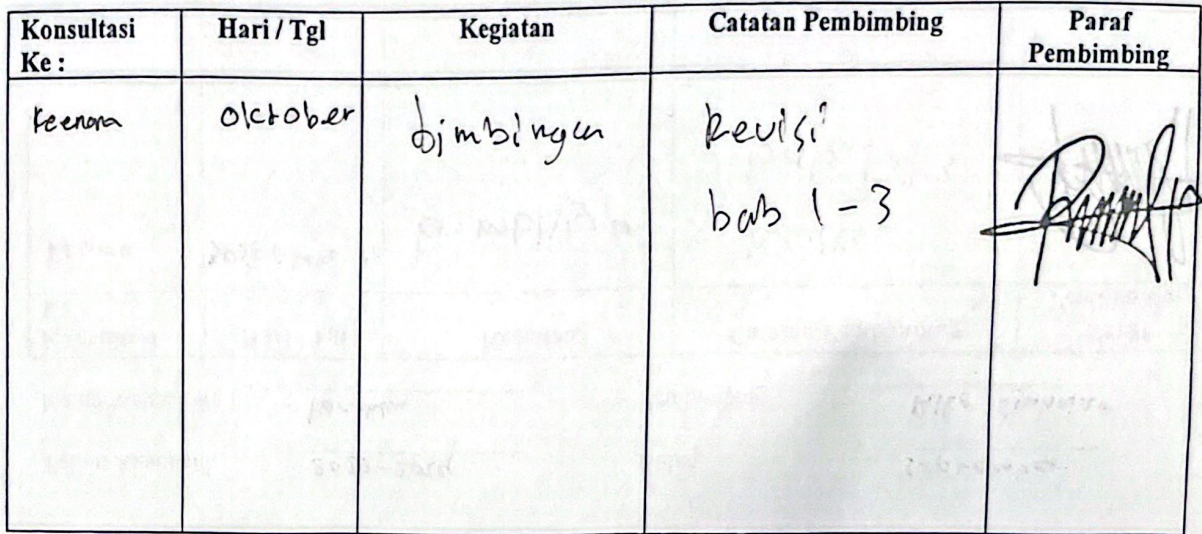 Konsultasi Ke : Hari / Tgl Kegiatan Catatan Pembimbing Paraf Pembimbing
Keenam Oktober bimbingan Revisi
bab 1 - 3